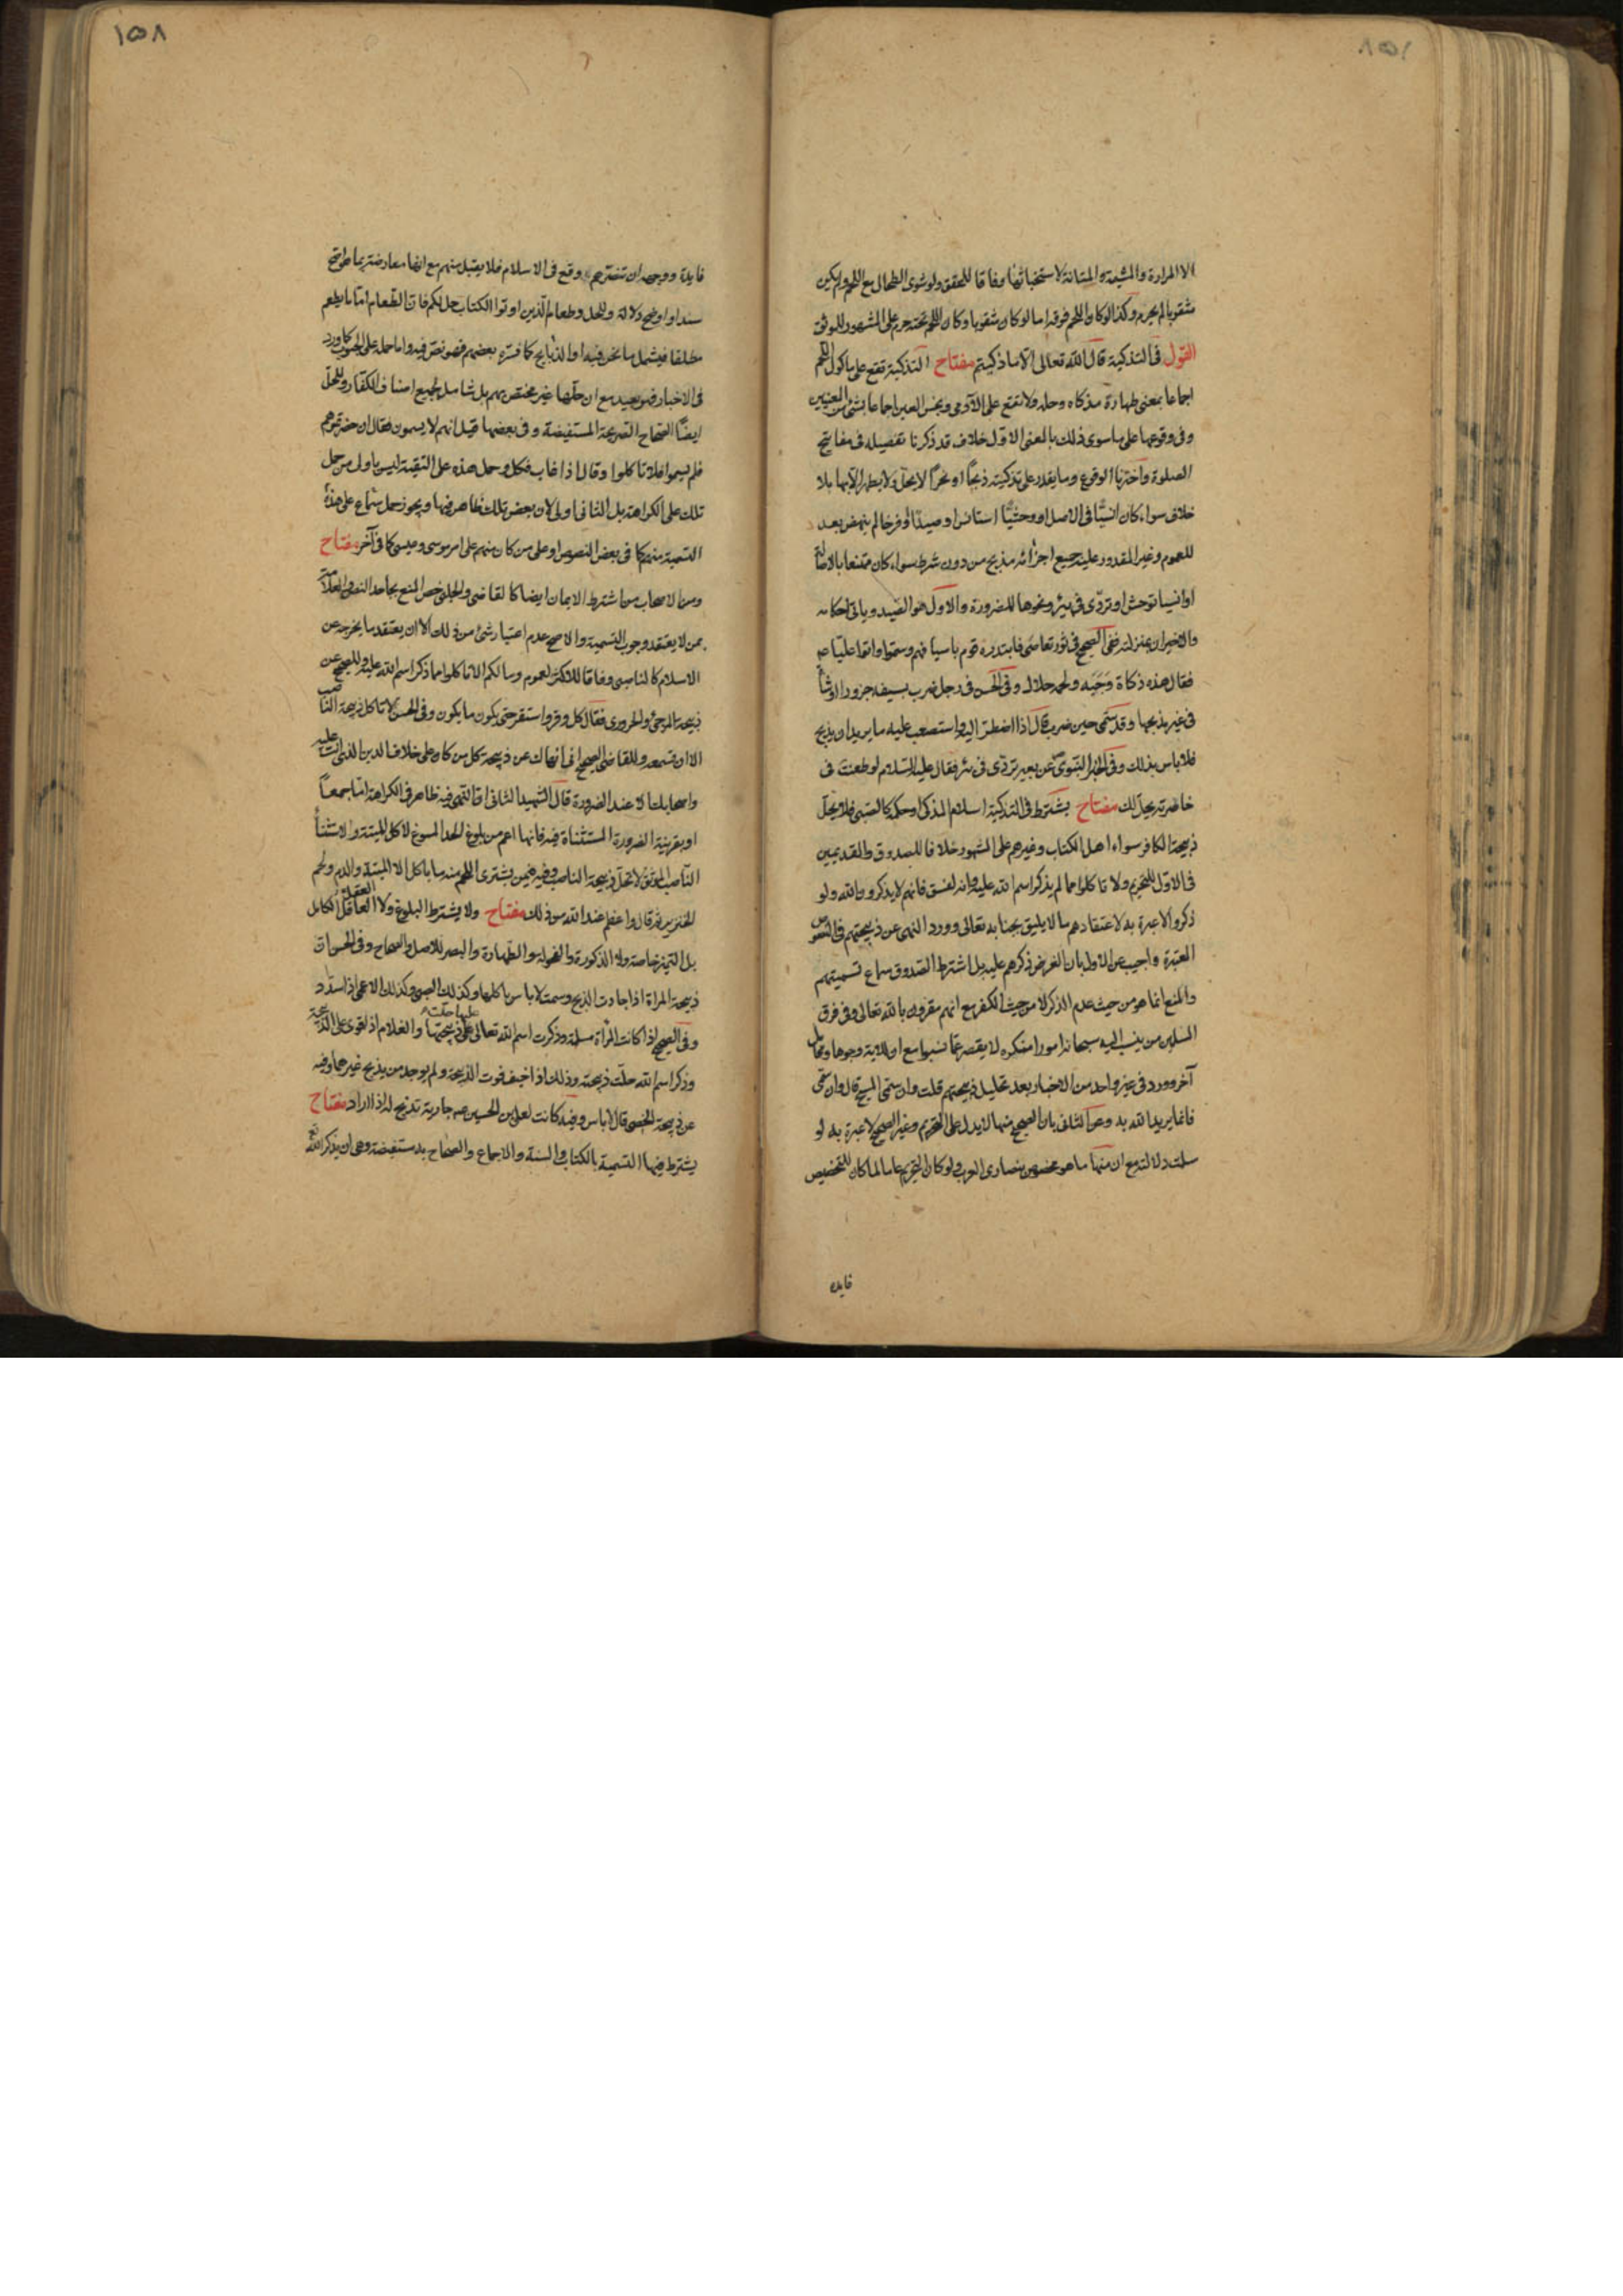 ١٥٨
الا المرارة والمشيمة والمثانة لاستخباثها وفاقا للمحقق ولو شوى الطحال مع اللحم ولم يكن
مثقوبا لم يحرم وكذا لو كان اللحم فوقه اما لو كان مثقوبا وكان اللحم تحته حرم على المشهور للموثق
القول فى التذكية قال الله تعالى الا ما ذكيتم مفتاح التذكية تقع على ماكول اللحم
اجماعا بمعنى طهارة مذكاه وحله ولا تقع على الآدمى ونجس العين اجماعا بشئ من المعنيين
وفى وقوعها على ما سوى ذلك بالمعنى الاول خلاف قد ذكرنا تفصيله فى مفاتيح
الصلوة واخترنا الوقوع وما يقدر على تذكيته ذبحًا او نحرًا لا يحل ولا يطهر الا بها بلا
خلاف سواء كان انسيًّا فى الاصل او وحشيًّا استانس او صيدًا او فرخا لم ينهض بعد
للعموم وغير المقدور عليه جميع اجزائه مذبح من دون شرط سواء كان ممتنعا بالاصالة
او انسيا توحش او تردّى فى بئر ونحوها للضرورة والاول هو الصيد وياتى احكامه
والاخيران بمنزلته ففى الصحيح فى ثور تعاصى فابتدره قوم باسيافهم وسموا واتوا عليا ع
فقال هذه ذكاة وحيه ولحمه حلال وفى الحسن فى رجل ضرب بسيفه جزورا او شاة
فى غير مذبحها وقد سمى حين ضرب قال اذا اضطر اليه واستصعب عليه ما يريد ان يذبح
فلا باس بذلك وفى الخبر النبوى عن بعير تردّى فى بئر فقال عليه السلام لو طعنت فى
خاصرته يحل لك مفتاح يشترط فى التذكية اسلام المذكى او حكمه كالصبى فلا يحل
ذبيحة الكافر سواء اهل الكتاب وغيرهم على المشهور خلافا للصدوق والقديمين
فى الاول للتحريم ولا تاكلوا مما لم يذكر اسم الله عليه وانه لفسق فانهم لا يذكرون الله ولو
ذكروا لا عبرة به لاعتقادهم ما لا يليق بجنابه تعالى وورد النهى عن ذبيحتهم فى النصوص
المعتبرة واجيب عن الاول بان الغرض ذكرهم عليه بل اشترط الصدوق سماع تسميتهم
والمنع انما هو من حيث عدم الذكر لا من حيث الكفر مع انهم مقرون بالله تعالى وفى فرق
المسلمين من ينسب اليه سبحانه امورا منكره لا يقصر عما نسبوا مع ان للاية وجوها ومحامل
آخر وورد فى غير واحد من الاخبار بعد تحليل ذبيحتهم قلت وان سمى المسيح قال وان سمى
فانما يريد الله به وعن الثانى بان الصحيح منها لا يدل على التحريم وغير الصحيح لا عبرة به لو
سلمت دلالته مع ان منها ما هو مخصوص بنصارى العرب ولو كان التحريم عاما لما كان للتخصيص
فايده
١٥٨
فايدة ووجهه ان تنصرهم وقع فى الاسلام فلا يقبل منهم مع انها معارضة بما هو اصح
سندا واوضح دلالة وللحل وطعام الذين اوتوا الكتاب حل لكم فان الطعام اما ما يطعم
مطلقا فيشمل ما نحن فيه او الذبايح كما فسّره بعضهم فهو نص فيه واما حمله على الحبوب كما ورد
فى الاخبار فهو بعيد مع ان حلها غير مختص بهم بل شامل لجميع اصناف الكفار وللحل
ايضًا الصحاح الصريحة المستفيضة وفى بعضها قيل انهم لا يسمون فقال ان حضرتموهم
فلم يسموا فلا تاكلوا وقال اذا غاب فكل وحمل هذه على التقية ليس باولى من حمل
تلك على الكراهة بل الثانى اولى لان بعض تلك ظاهر فيها ويجوز حمل سماع على هذه
التسمية منهم كما فى بعض النصوص او على من كان منهم على امر موسى وعيسى كما فى آخر مفتاح
ومن الاصحاب من اشترط الايمان ايضا كالقاضى والحلبى خص المنع بجاحد النص والعلامة
بمن لا يعتقد وجوب التسمية والاصح عدم اعتبار شئ من ذلك الا ان يعتقد ما يخرجه عن
الاسلام كالناصبى وفاقا للاكثر لعموم وما لكم الا تاكلوا مما ذكر اسم الله عليه وللصحيح عن
ذبيحة المرجئ والحرورى فقال كل وقر واستقر حتى يكون ما يكون وفى الحسن لا تاكل ذبيحة الناصب
الا ان تسمعه وللقاضى الصحيح انى انهاك عن ذبيحة كل من كان على خلاف الدين الذى انت عليه
واصحابك الا عند الضرورة قال الشهيد الثانى اما النهى فيه ظاهر فى الكراهة اما جمعًا
او بقرينة الضرورة المستثناة فيه فانها اعم من بلوغ الحد المسوغ لاكل الميتة والاستثناء
الناصب الموثق لا تحل ذبيحة الناصب وفيه فيمن يشترى اللحم منه ما ياكل الا الميتة والدم ولحم
الخنزير ثم قال واعظم عند الله من ذلك مفتاح ولا يشترط البلوغ ولا العقل العاقل الكامل
بل التميز خاصة ولا الذكورة والفحولية والطهارة والبصر للاصل والصحاح وفى الحسن ان
ذبيحة المراة اذا اجادت الذبح وسمت لا باس باكلها وكذلك الصبى وكذلك الاعمى اذا سدد
وفى الصحيح اذا كانت المرأة مسلمة وذكرت اسم الله تعالى على ذبيحتها عليها حلت والغلام اذا قوى على الذبيحة
وذكر اسم الله حلت ذبيحته وذلك اذا خيف فوت الذبيحة ولم يوجد من يذبح غيرهما وفيه
عن ذبيحة الخصى قال لا باس وفيه كانت لعلى بن الحسين ع جارية تذبح له اذا اراد مفتاح
يشترط فيها التسمية بالكتاب والسنة والاجماع والصحاح به مستفيضة وهى ان يذكر الله تع